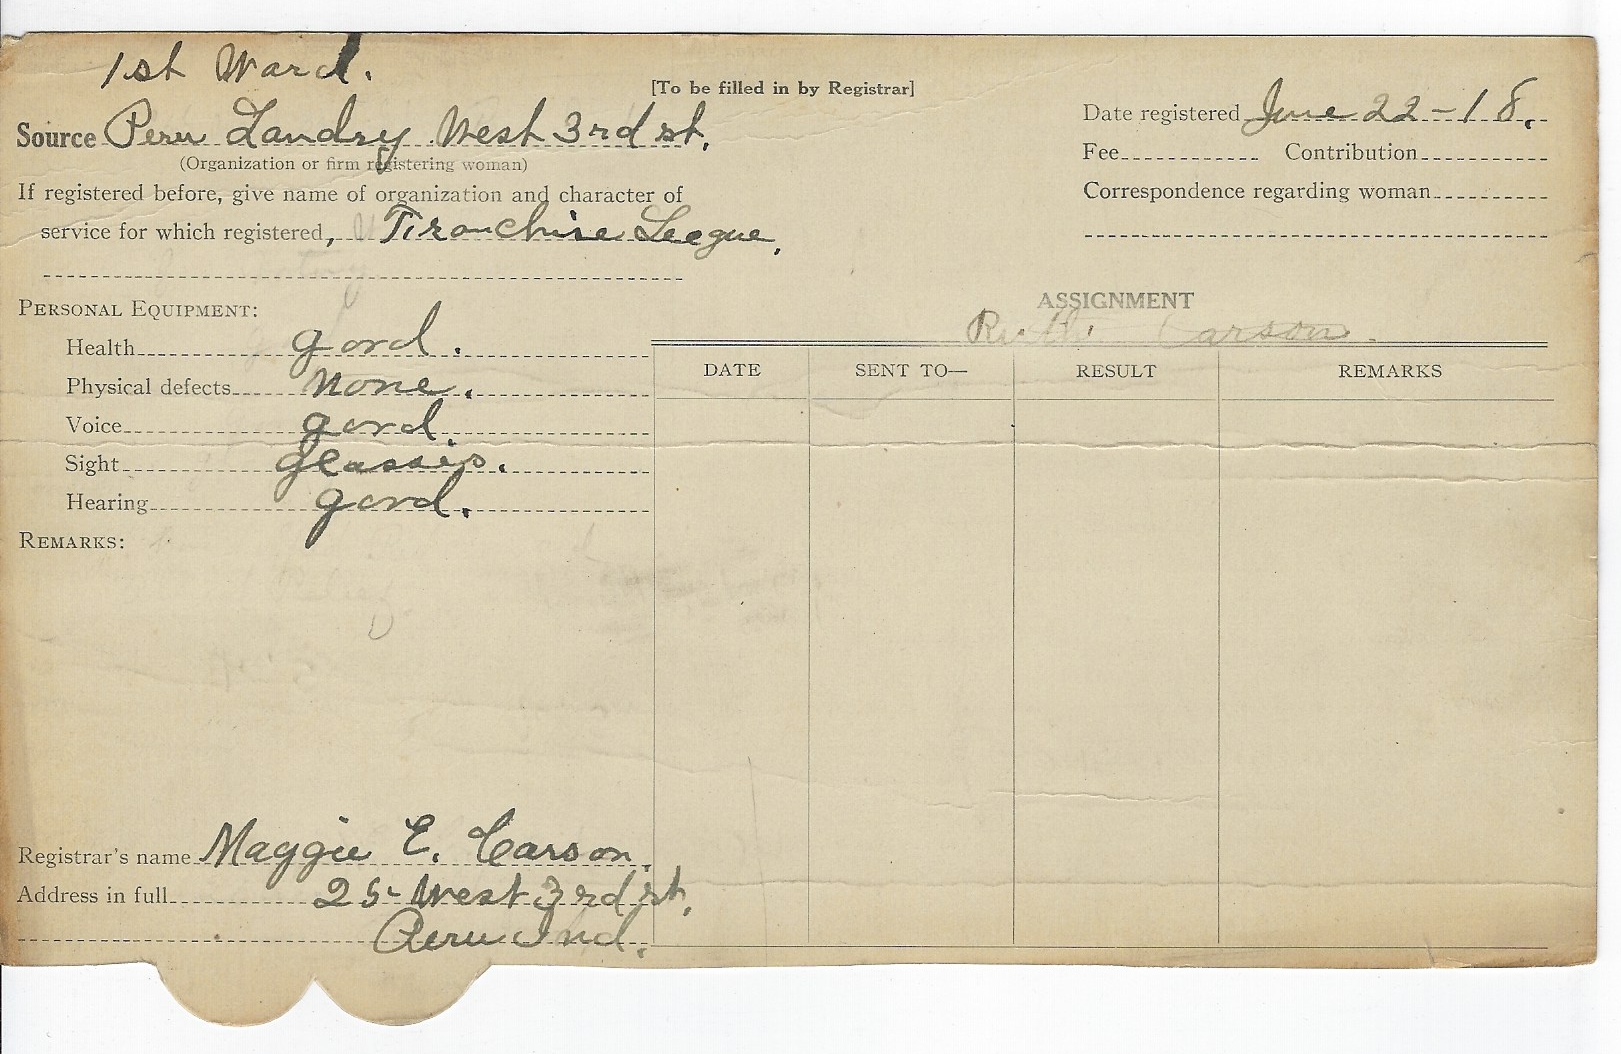 1st Ward.
[To be filled in by Registrar]
Source Peru Landry West 3rd st.
(Organization or firm registering woman)
If registered before, give name of organization and character of
service for which registered, Franchise Leegue.
Date registered June 22-18.
Fee Contribution
Correspondence regarding woman
PERSONAL EQUIPMENT:
Health good.
Physical defects none.
Voice good.
Sight glasses.
Hearing good.
REMARKS:
ASSIGNMENT
Ruth Carson
DATE SENT TO— RESULT REMARKS
Registrar's name Maggie E. Carson.
Address in full 25- West 3rd st.
Peru Ind.